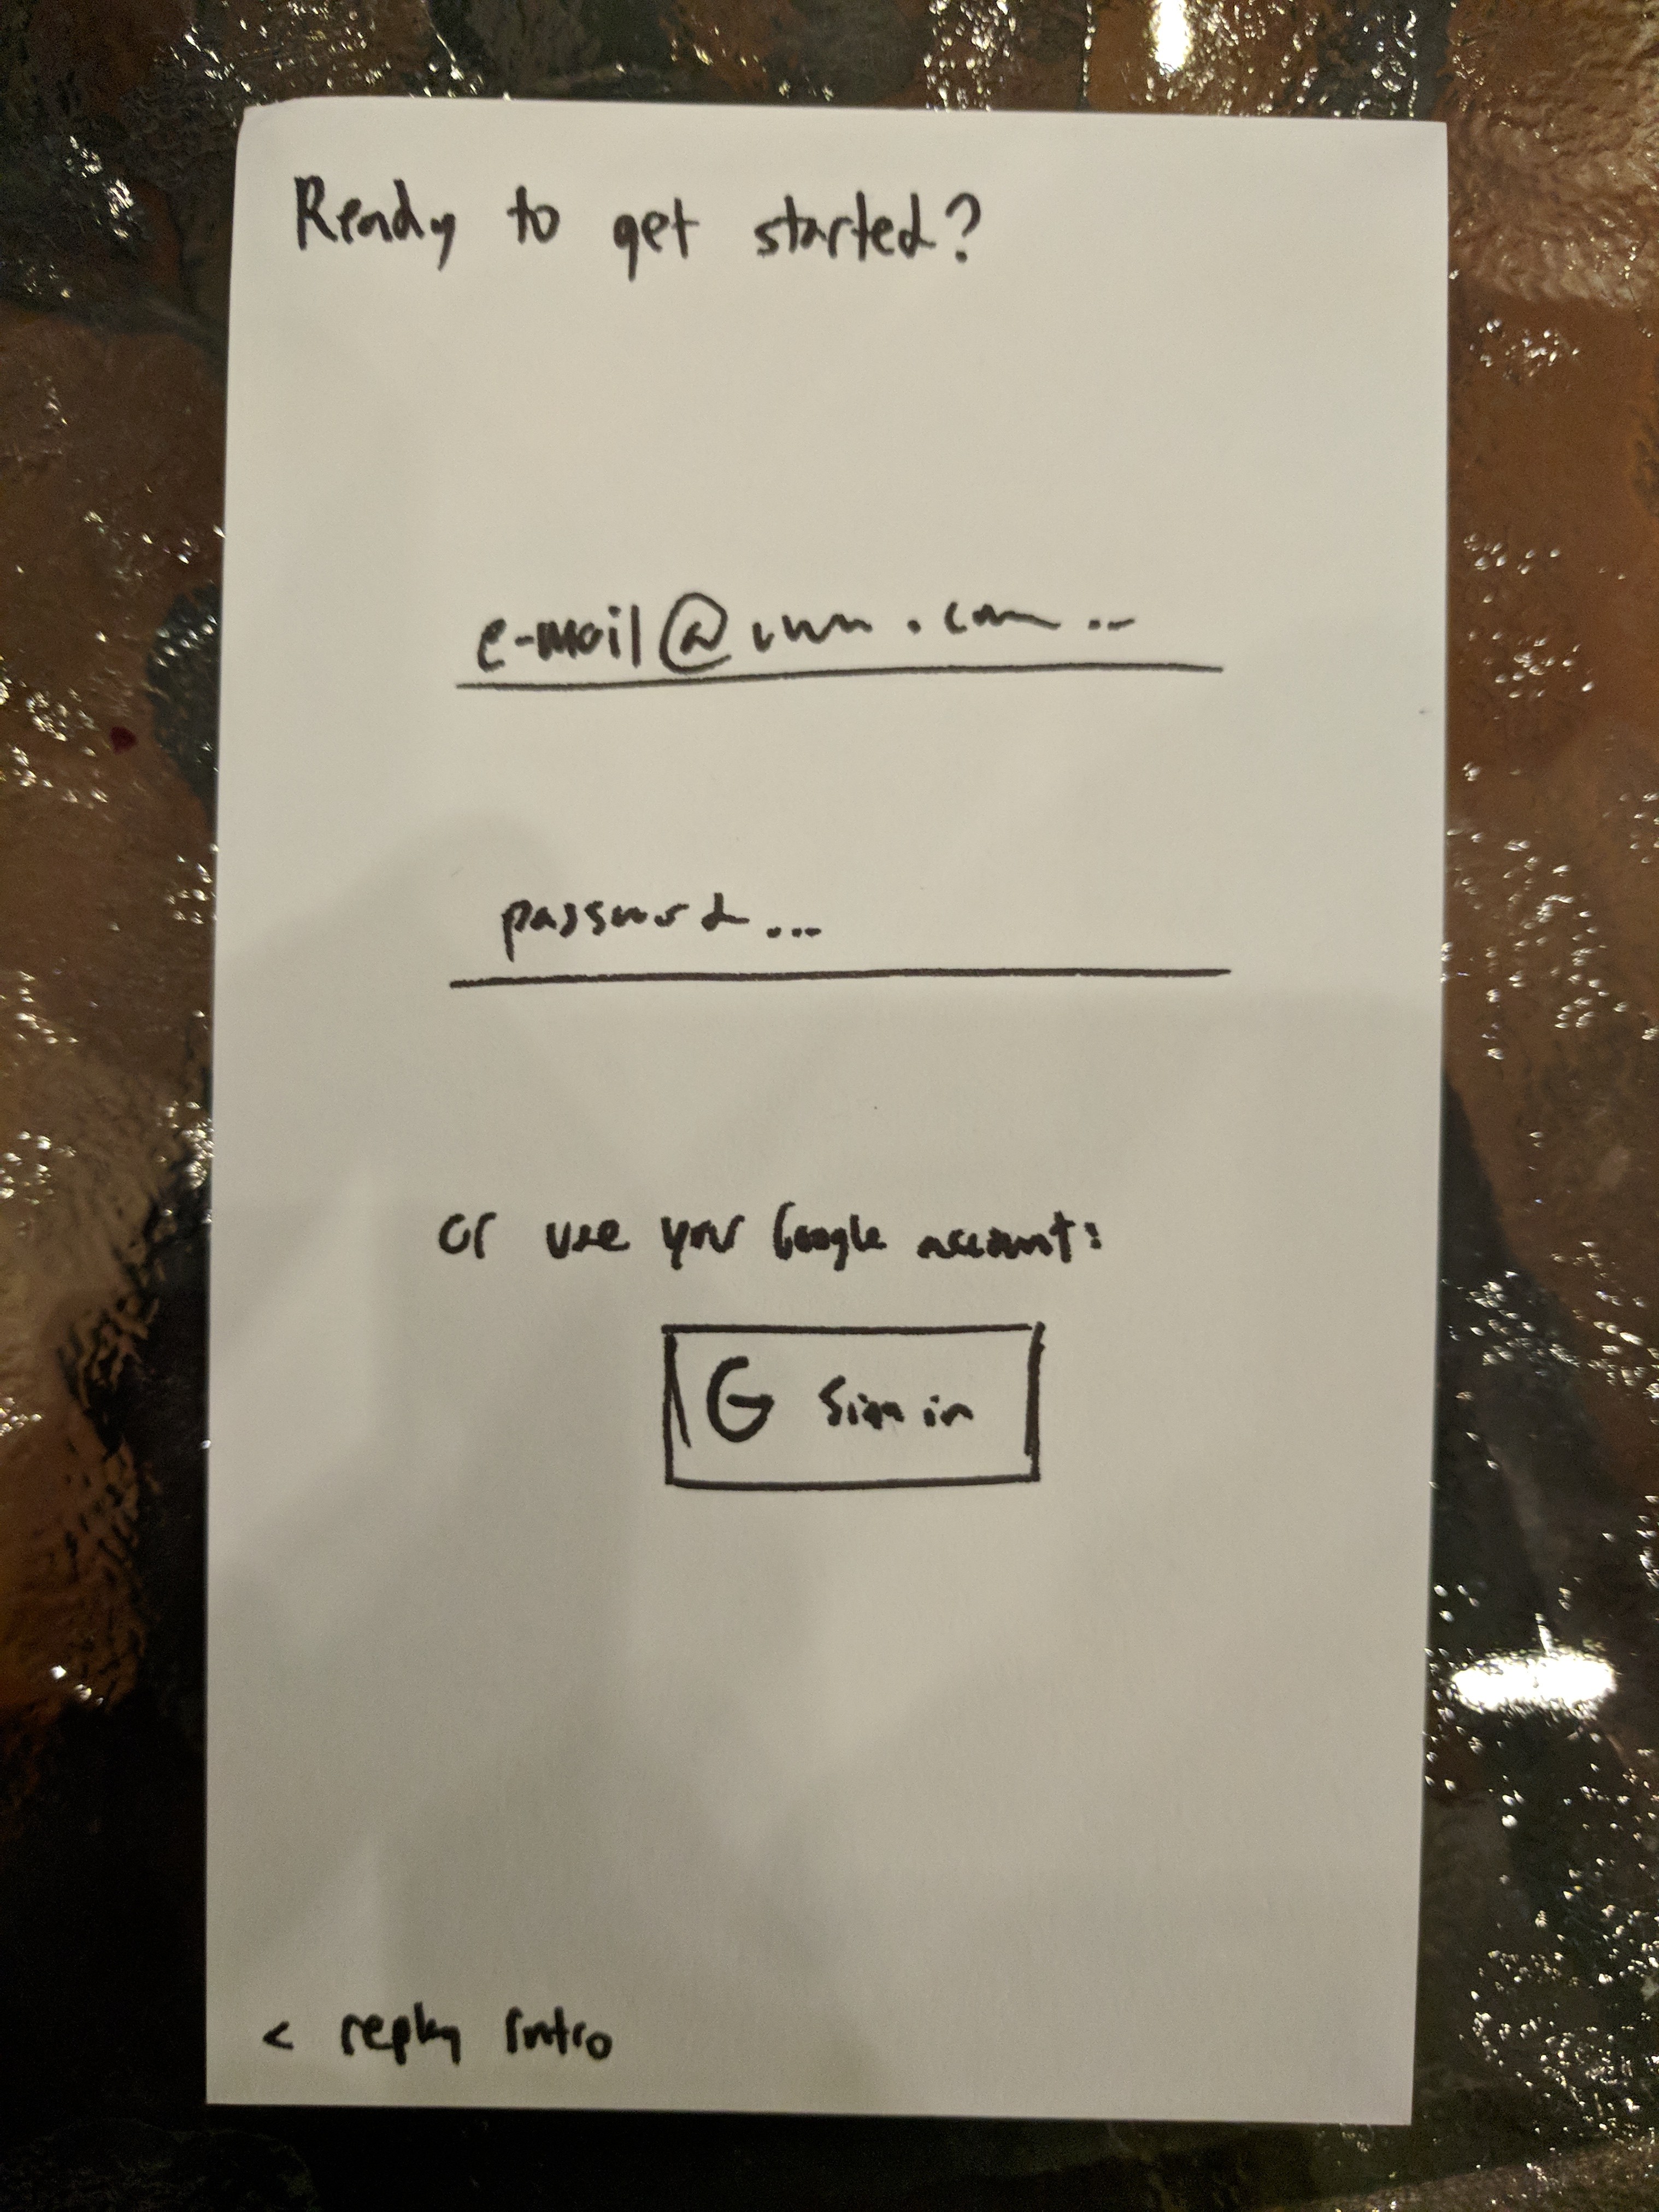 Ready to get started?
e-mail@ . com ...
password...
or use your Google account:
G Sign in
< replay intro